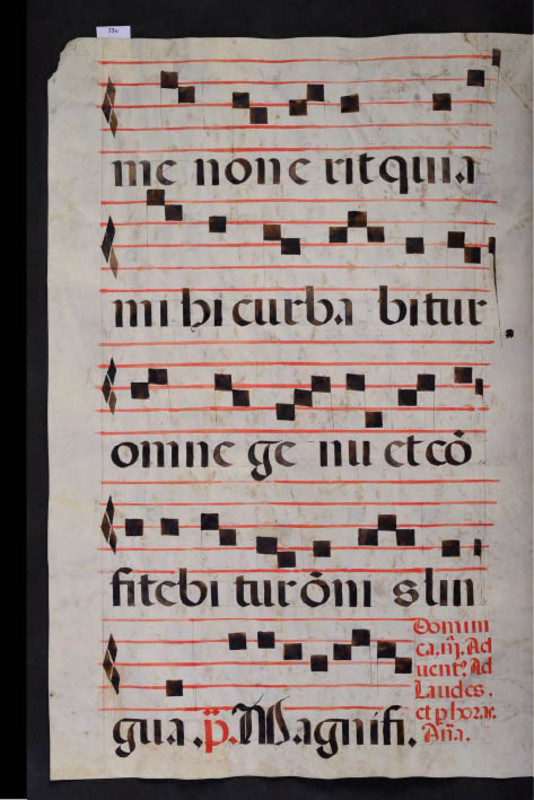 33v
me non e rit quia
mi hi curba bitur
omne ge nu et cō
fitebi tur ōni s lin
gua. p̄. Magnifi.
Domini
ca. iij. Ad
uent? Ad
Laudes.
et p horas.
Aña.